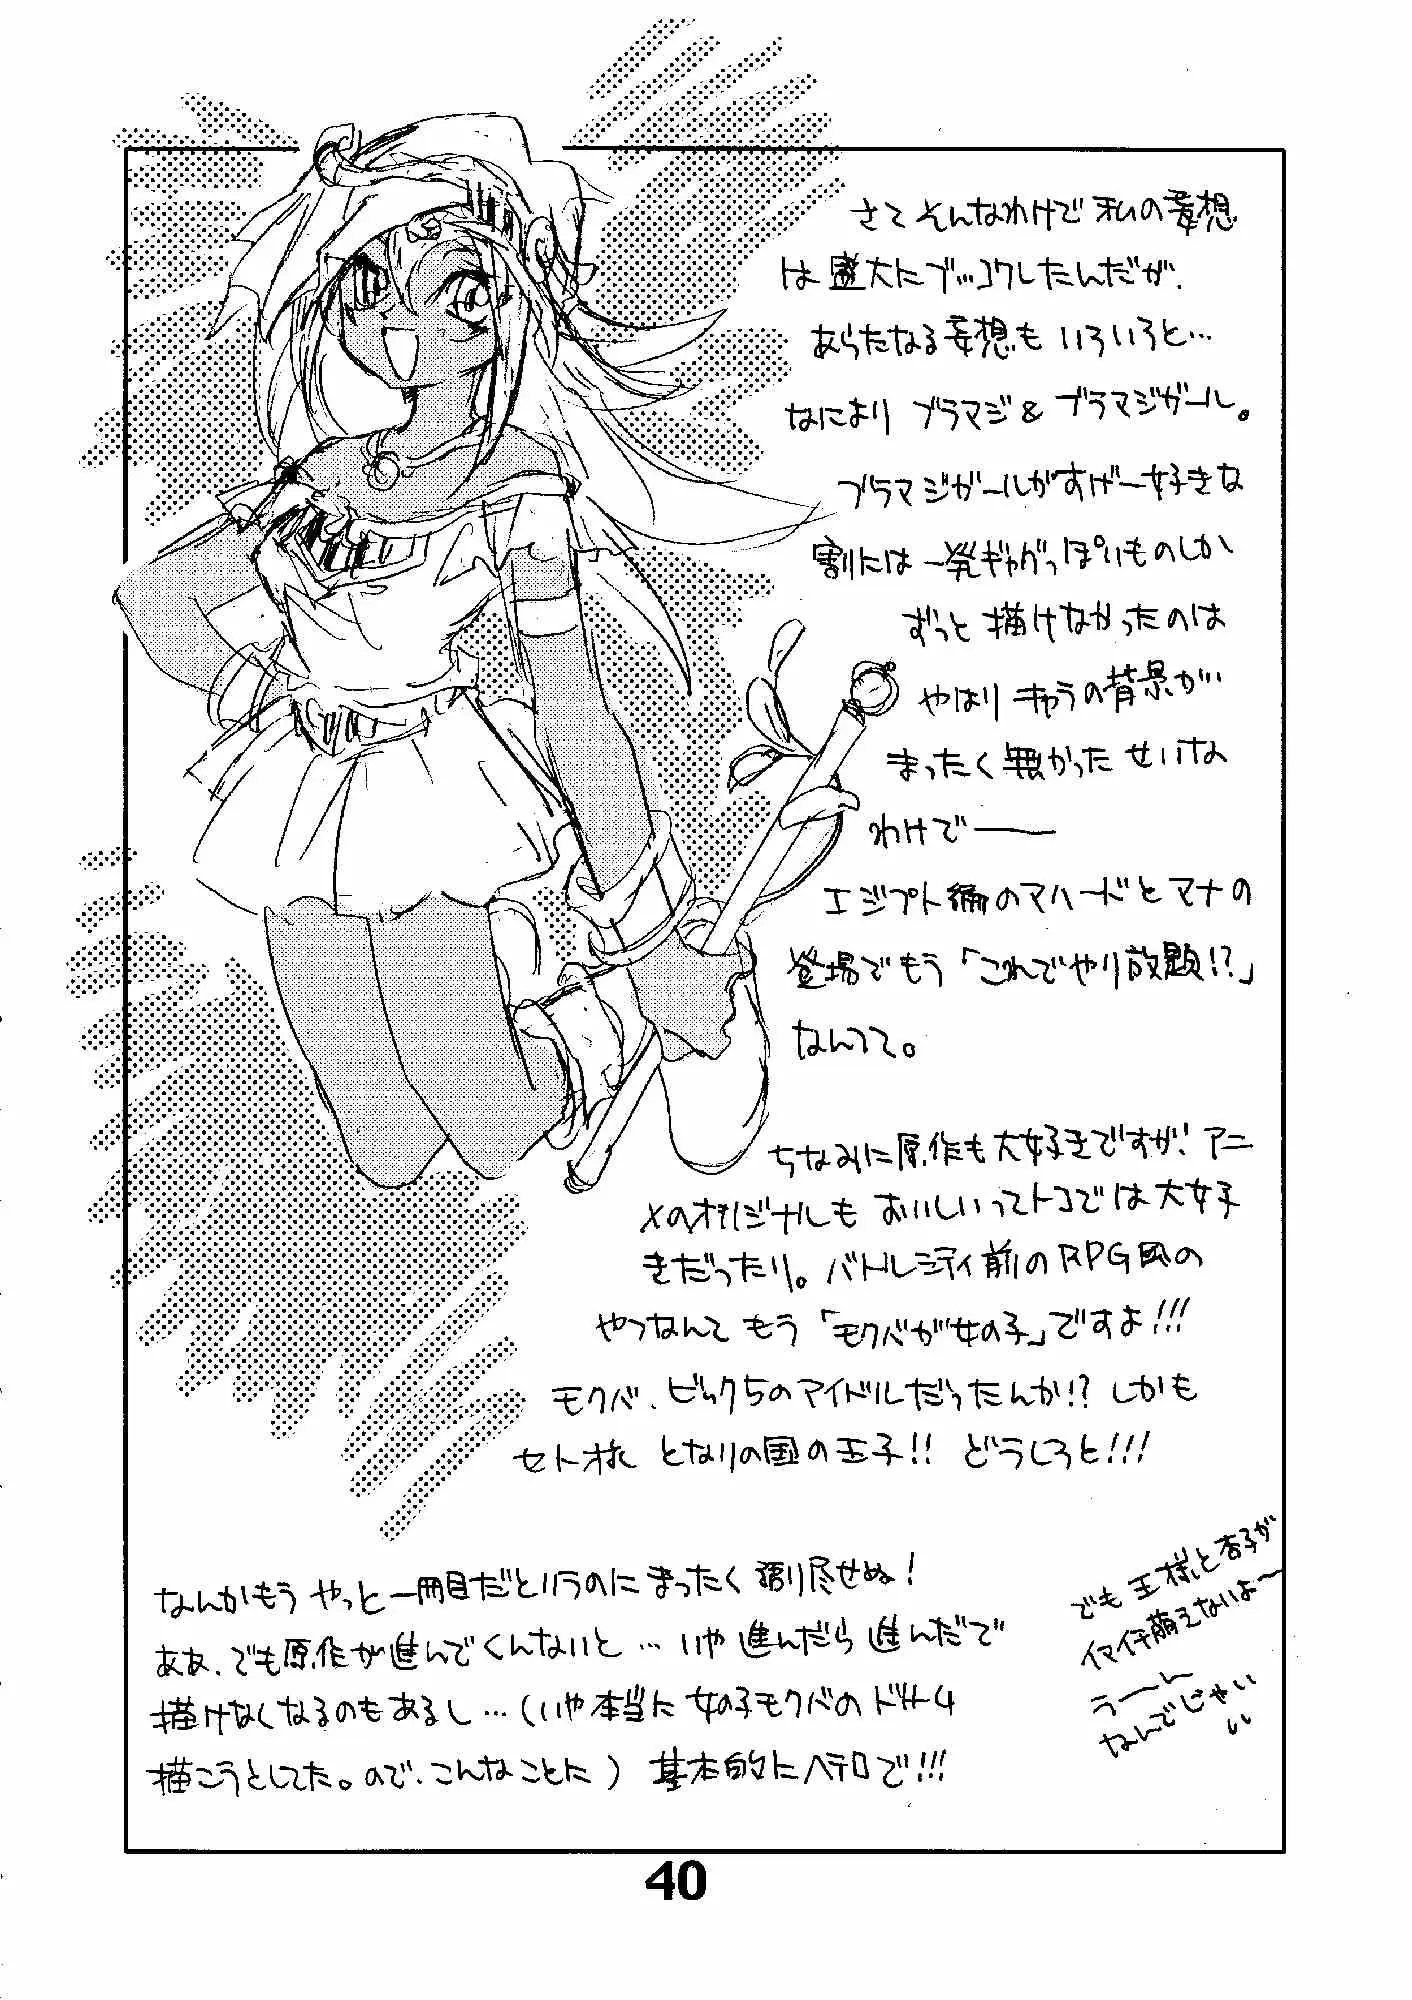 さて そんなわけで 私の妄想
は 盛大にブッコワしたんだが、
あらたなる妄想も いろいろと…
なにより ブラマジ & ブラマジガール。
ブラマジガールがすげー好きな
割には 一発ギャグっぽいものしか
ずっと 描けなかったのは
やはり キャラの背景が
まったく 無かった せいな
わけで――
エジプト編のマハードとマナの
登場でもう「これでやり放題!?」
なんてて。
ちなみに原作も大好きですが、アニ
メのオリジナルも おいしいってトコでは大好
きだったり。バトルシティ前のRPG風の
やつなんて もう 「モクバが女の子」ですよ!!!
モクバ、ビック5のアイドルだったんか!? しかも
セト様 となりの国の王子!! どうしろと!!!
なんかもう やっと一冊目だというのに まったく 語り尽せぬ!
ああ、でも原作が進んでくんないと… いや 進んだら 進んだで
描けなくなるのもあるし…(いや本当に 女の子モクバの ドリーム
描こうとしてた。ので、こんなことに) 基本的にヘテロで!!!
でも 王様と杏子が
イマイチ萌えないよ～
うーん
なんでじゃい
い
40